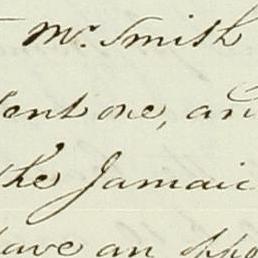 Mr. Smith
tent one, an
the Jamaic
have an oppo